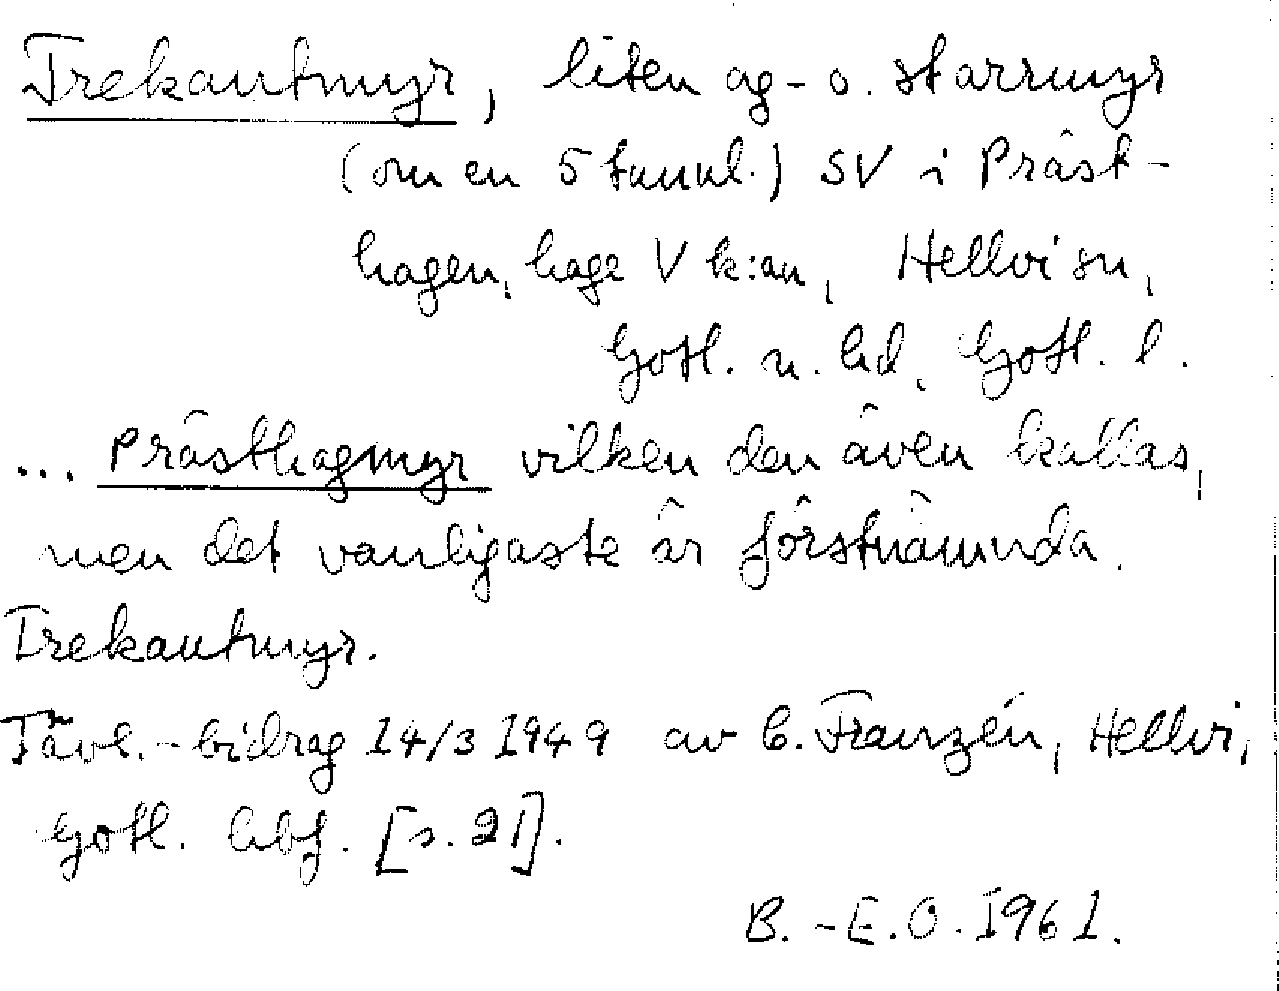 Trekantmyr, liten ag- o. starrmyr
(om en 5 tunnl.) SV i Präst-
hagen, hage V k:an, Hellvi sn,
Gotl. n. hd, Gotl. l.
... Prästhagmyr vilken den även kallas,
men det vanligaste är förstnämnda.
Trekantmyr.
Tävl.-bidrag 14/3 1949 av C. Franzén, Hellvi,
Gotl. hbf. [s. 21].
B.-E.O. 1961.